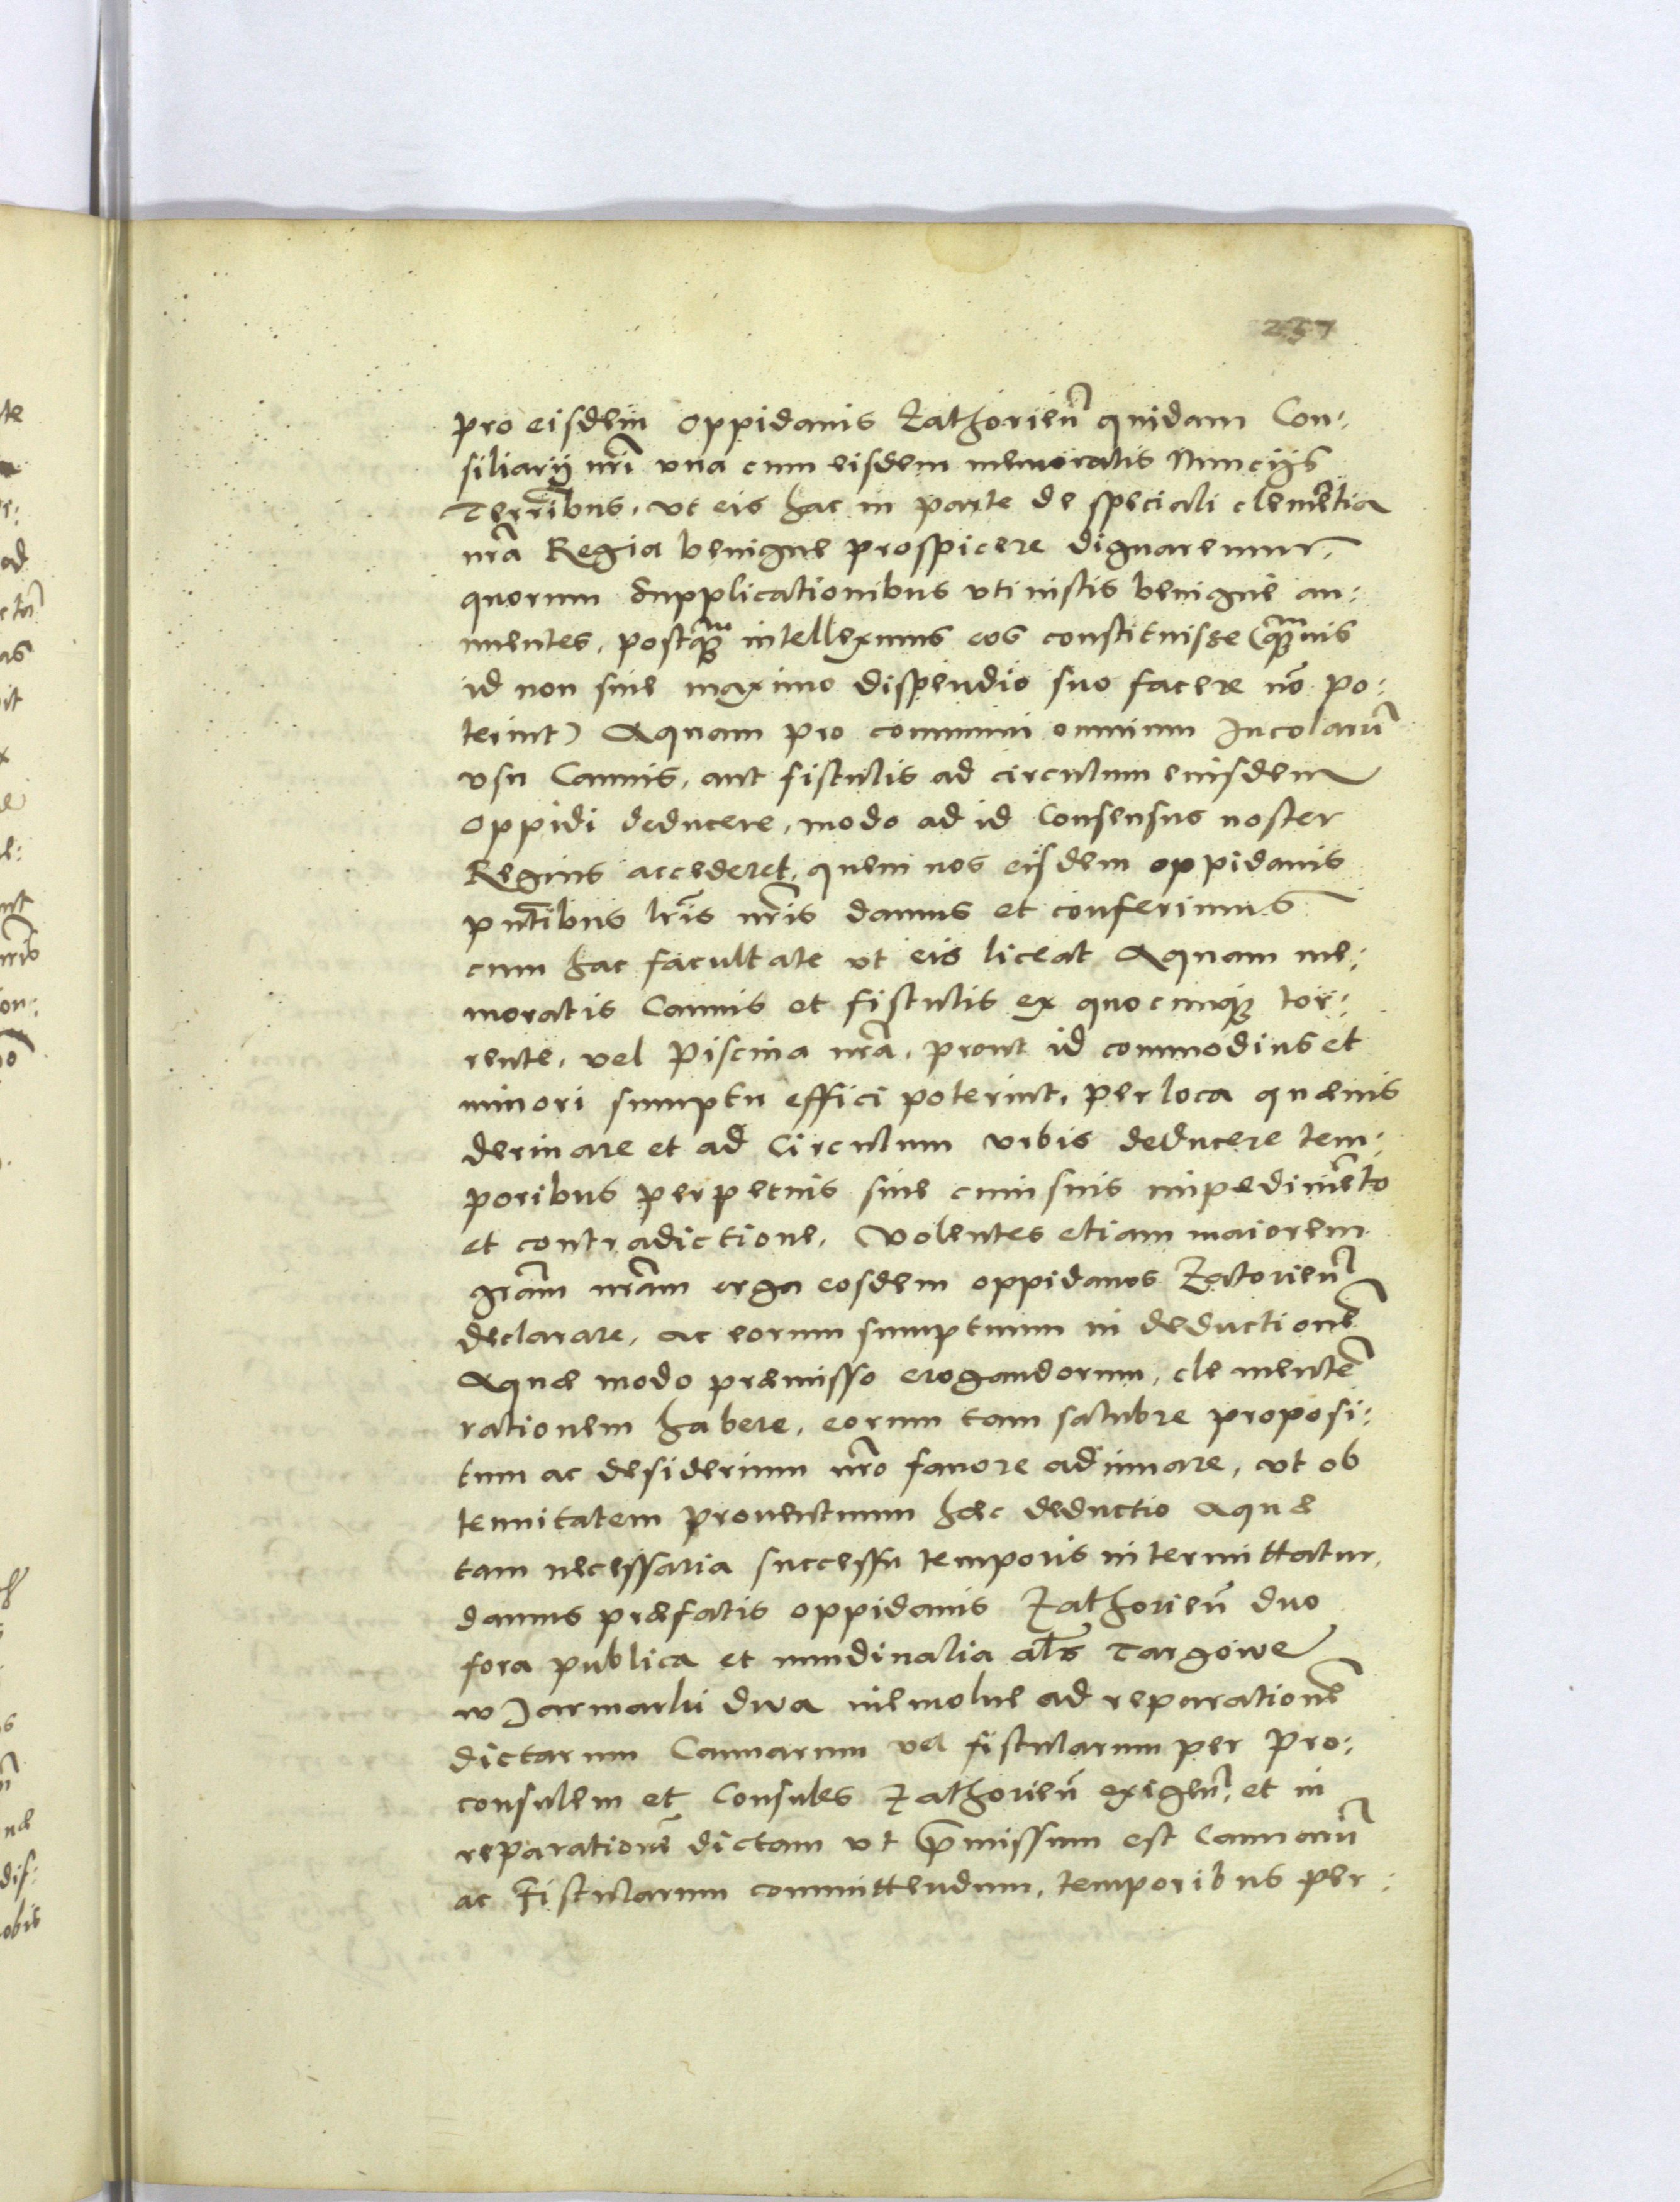 257
pro eisdem oppidanis Zathorień quidam Con:
siliarij nrĩ vna cum eisdem memoratis Nuncijs
Terrĩbus, vt eis hac in parte de speciali clemẽtia
nrã Regia benigne prospicere dignaremur,
quorum supplicationibus vti iustis benigne an:
nuentes, postq̃ꝫ intelleximus eos constituisse (q̃ꝫuis
id non sine maximo dispendio suo facere nõ po:
terint) Aquam pro communi omnium Incolarũ
vsu Cannis, aut fistulis ad circulum eiusdem
oppidi deducere, modo ad id Consensus noster
Regius accederet, quem nos eisdem oppidanis
pñtibus lrĩs nrĩs damus et conferimus
cum hac facultate vt eis liceat Aquam me:
moratis Cannis et fistulis ex quocunqꝫ tor:
rente, vel Piscina nrã, prout id commodius et
minori sumptu effici poterint, per loca quæuis
deriuare et ad Circulum vrbis deducere tem:
poribus perpetuis sine cuiusuis impedimẽto
et contradictione. Volentes etiam maiorem
grãm nrãm erga eosdem oppidanos Zatorień
declarare, ac eorum sumptuum in deductionẽ
Aquæ modo præmisso erogandorum, clementẽ
rationem habere, eorum tam salubre proposi:
tum ac desiderium nrõ fauore adiuuare, vt ob
tenuitatem prouentuum hæc deductio Aquæ
tam necessaria successu temporis intermittatur,
damus præfatis oppidanis Zathorień duo
fora publica et nundinalia al̃s Targowe
w Jarmarki dwa niewolne ad reparationẽ
dictarum Cannarum vel fistularum per Pro:
consulem et Consules Zathorień exigeñ, et in
reparationẽ dictam vt p̃missum est Cannarũ
ac Fistularum committendum, temporibus per: